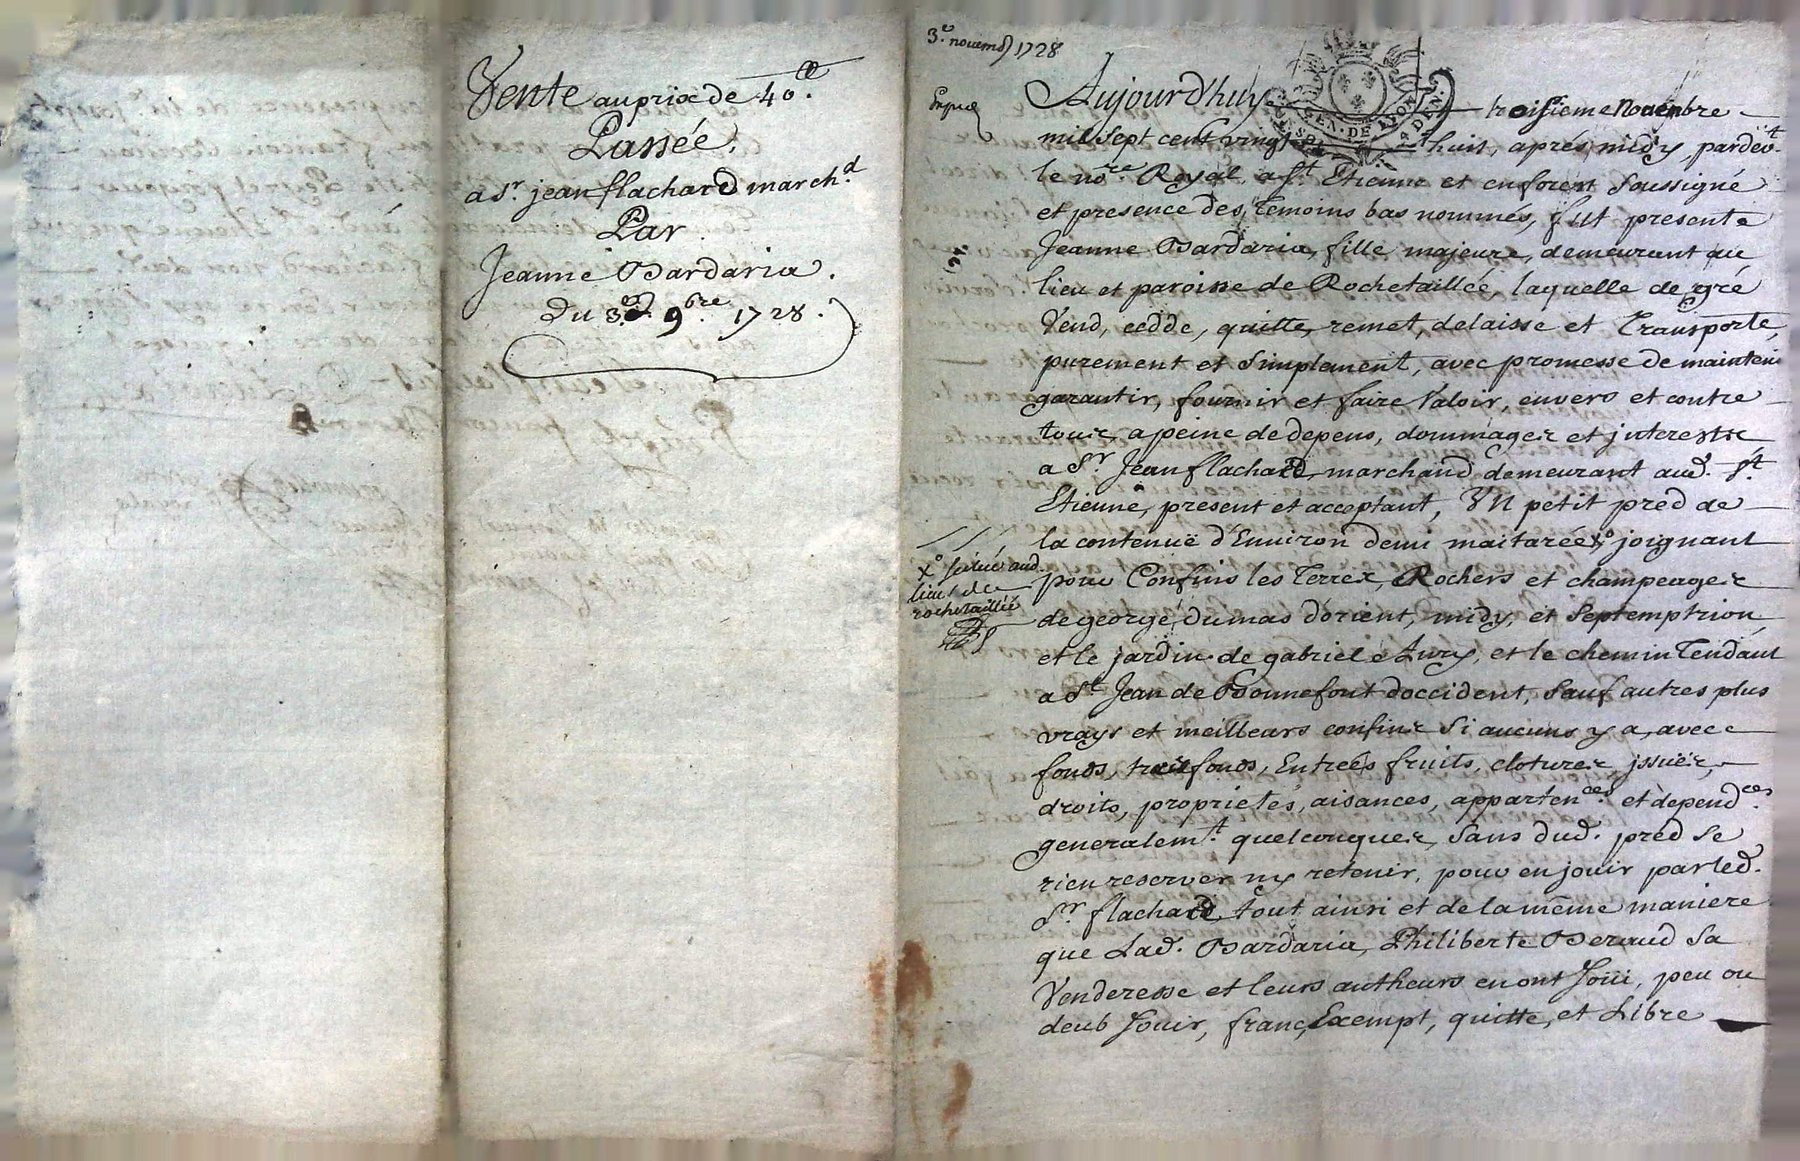 Vente au prix de 40.ₗₗ
Passée.
a Sr. jean flachard march.d
Par.
Jeanne Bardaria.
Du 3.e 9.bre 1728.
3.e novemb 1728
Aujourd'huy troisieme Novembre
GEN. DE LYON
4 DEN.
mil Sept cent vingt huit, aprés midy, pardevt.
le nore. Royal, a St. Etienne et en forest soussigné
et presence des Temoins bas nommés, fut presente
Jeanne Bardaria, fille majeure, demeurant au
lieu et paroisse de Rochetaillée, laquelle de gré
Vend, cedde, quitte, remet, delaisse et Transporte,
purement et simplement, avec promesse de mainteni
garantir, fournir et faire Valoir, envers et contre
tous, a peine de depens, dommages et jnterests
a Sr. Jean flachard marchand demeurant aud. St.
Etienne, present et acceptant, Un petit pred de
la contenuë d'Environ demi maitarée x° joignant
x° scitué aud.
lieu de
rochetaillée
pour Confins les Terres, Rochers et champeages
de george dumas d'orient, midy, et Septemptrion
et le jardin de gabriel Aury, et le chemin Tendant
a St. Jean de Bonnefont doccident, Sauf autres plus
vrays et meilleurs confins Si aucuns y a, avec
fonds, trasfonds, Entreés fruits, clotures, jssuës,
droits, proprietés, aisances, apparten.ces et depend.ces
generalem.t quelconques, Sans dud. pred se
rien reserver ny retenir, pour en jouir par led.
Sr. flachard, tout ainsi et de la même maniere
que Lad. Bardaria, Philiberte Beraud Sa
Venderesse et leurs autheurs en ont Joüi, peu ou
deub Jouir, franc, Exempt, quitte, et Libre